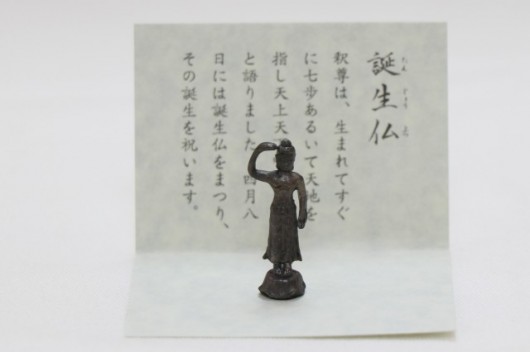 誕生仏
たん じょう ぶつ
釈尊は、生まれてすぐ
に七歩あるいて天地を
指し天上天
と語りました 四月八
日には誕生仏をまつり、
その誕生を祝います。